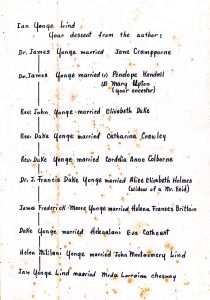 Ian Yonge Lind
Your descent from the author:
Dr. James Yonge married Jane Crampporne
Dr. James Yonge married (1) Penelope Kendall
(2) Mary Upton
(your ancestor)
Rev. John Yonge married Elizabeth Duke
Rev. Duke Yonge married Catharina Crawley
Rev. Duke Yonge married Cordelia Anne Colborne
Dr. J. Francis Duke Yonge married Alice Elizabeth Holmes
(widow of a Mr. Reid)
James Frederick Moore Yonge married Helena Frances Brittain
Duke Yonge married Hekealani Eva Cathcart
Helen Mililani Yonge married John Montgomery Lind
Ian Yonge Lind married Meda Lorraine Chesney